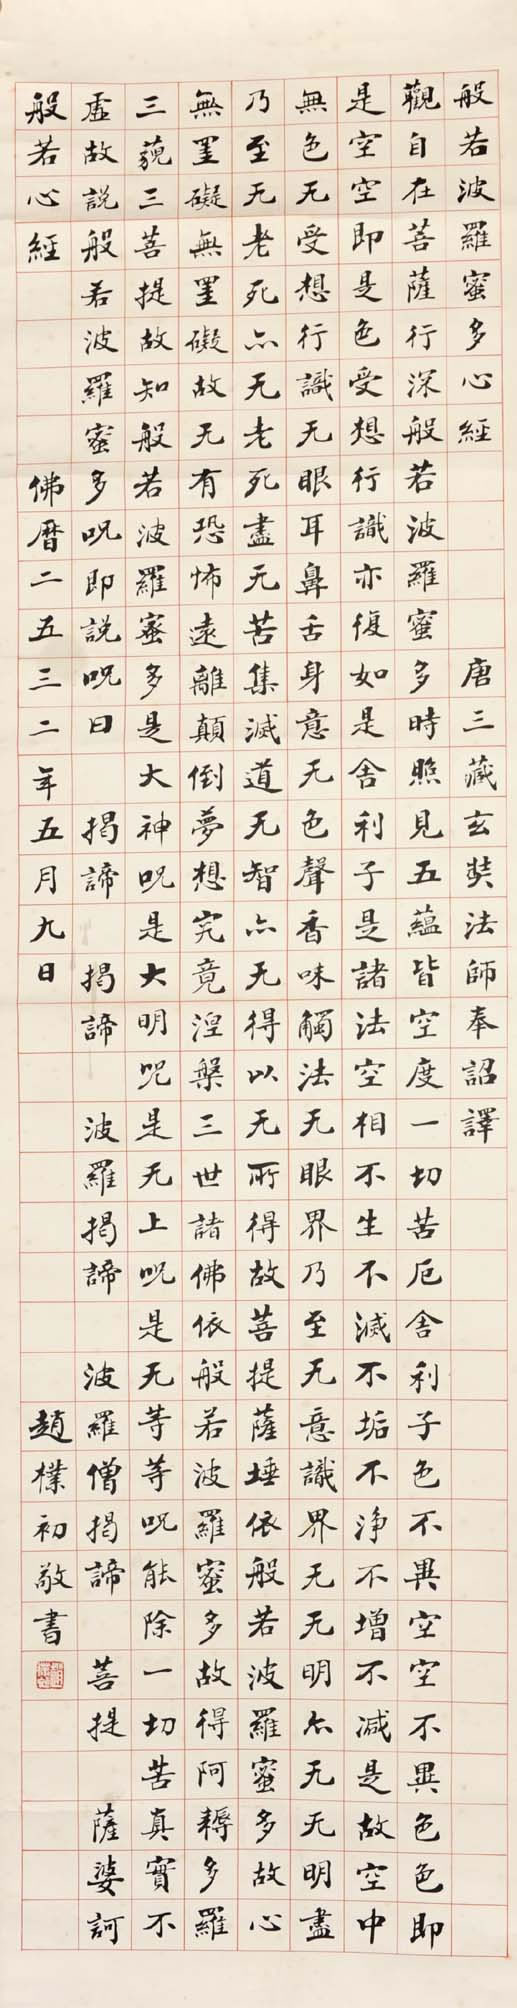 般若波羅蜜多心經 唐三藏玄奘法師奉詔譯
觀自在菩薩行深般若波羅蜜多時照見五蘊皆空度一切苦厄舍利子色不異空空不異色色即
是空空即是色受想行識亦復如是舍利子是諸法空相不生不滅不垢不淨不增不減是故空中
無色无受想行識无眼耳鼻舌身意无色聲香味觸法无眼界乃至无意識界无无明亦无无明盡
乃至无老死亦无老死盡无苦集滅道无智亦无得以无所得故菩提薩埵依般若波羅蜜多故心
無罣礙無罣礙故无有恐怖遠離顛倒夢想究竟涅槃三世諸佛依般若波羅蜜多故得阿耨多羅
三藐三菩提故知般若波羅蜜多是大神呪是大明呪是无上呪是无等等呪能除一切苦真實不
虛故說般若波羅蜜多呪即說呪曰 揭諦 揭諦 波羅揭諦 波羅僧揭諦 菩提 薩婆訶
般若心經 佛曆二五三二年五月九日 趙樸初敬書